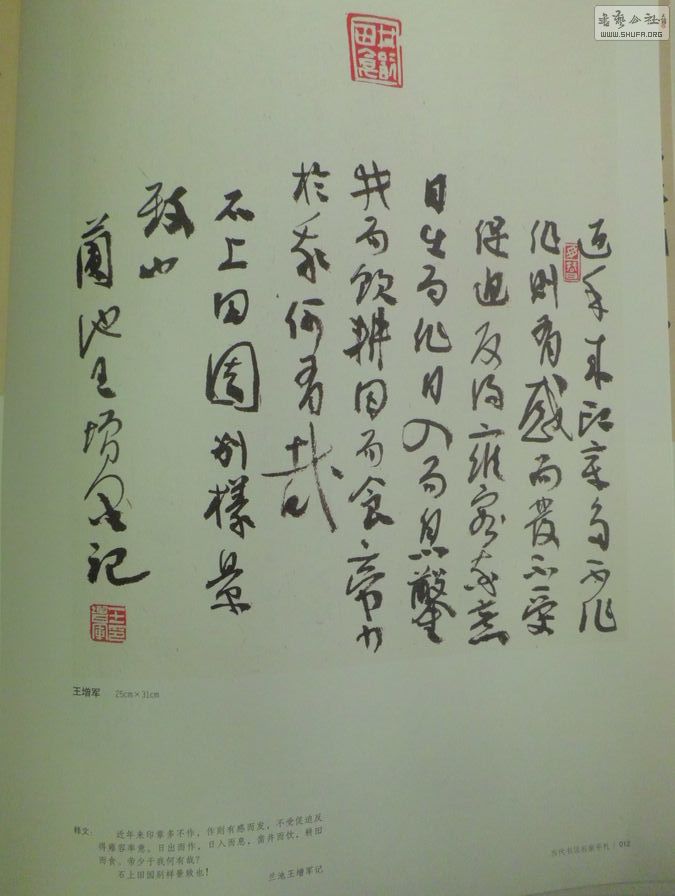 書藝公社
WWW.SHUFA.ORG
近年来印章多不作
作则有感而發不受
促迫反得雍容率意
日出而作日入而息鑿
井而飲耕田而食帝力
於我何有哉
石上田園别樣景
致也
蘭池王增军记
王增军 25cm×31cm
释文： 近年来印章多不作，作则有感而发，不受促迫反
得雍容率意。日出而作，日入而息，凿井而饮，耕田
而食。帝少于我何有哉？
石上田园别样景致也！
兰池王增军记
当代书法名家手札 / 012